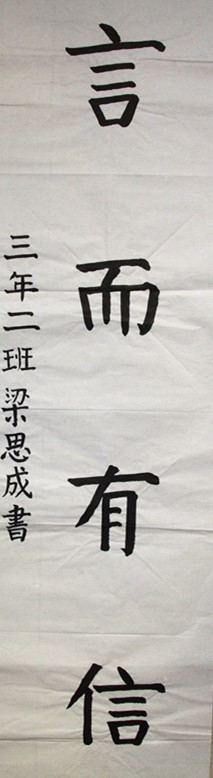 言而有信
三年二班梁思成書